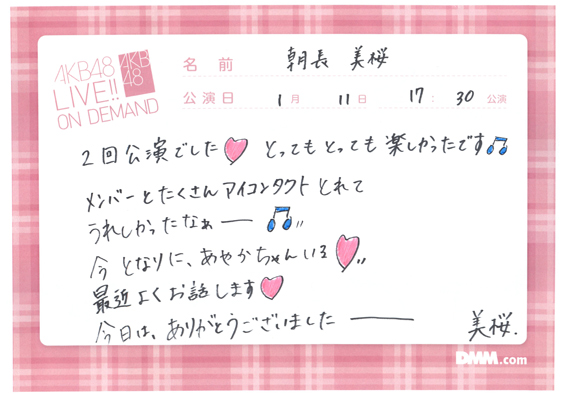 AKB48
LIVE!!
ON DEMAND
AKB
48
名 前 朝長 美桜
公演日 1月 11日 17:30 公演
2回公演でした とってもとっても楽しかったです
メンバーとたくさんアイコンタクトとれて
うれしかったなぁー
今 となりに、あやかちゃんいる
最近よくお話します
今日は、ありがとうございましたー
美桜.
DMM.com